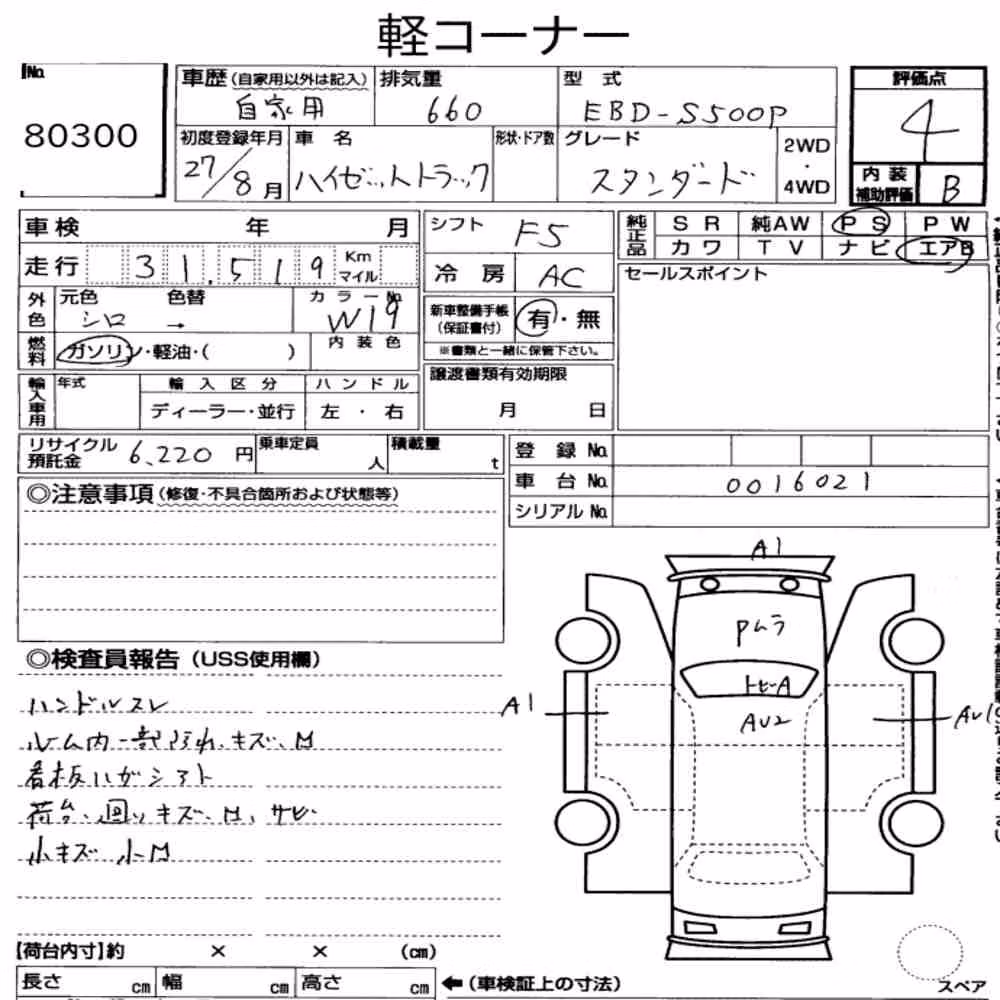 軽コーナー
No. 80300
車歴 (自家用以外は記入) 自家用
排気量 660
型式 EBD-S500P
評価点 4
初度登録年月 27/8月
車名 ハイゼットトラック
形状・ドア数
グレード スタンダード
2WD・4WD
内装補助評価 B
車検 年 月
シフト F5
純正品 SR 純AW PS PW
カワ TV ナビ エアB
走行 31,519 Km マイル
冷房 AC
セールスポイント
外色 元色 シロ 色替 → カラーNo. W19
新車整備手帳(保証書付) 有・無
※書類と一緒に保管下さい。
燃料 ガソリン・軽油・( )
内装色
輸入車用 年式 輸入区分 ハンドル
ディーラー・並行 左・右
譲渡書類有効期限
月 日
リサイクル預託金 6,220円
乗車定員 人
積載量 t
登録No.
車台No. 0016021
シリアルNo.
◎注意事項(修復・不具合箇所および状態等)
◎検査員報告(USS使用欄)
ハンドルスレ
ルーム内一部汚れ、キズ、凹
看板ハガシアト
荷台、回りキズ、凹、サビ
小キズ 小凹
A1
Pムラ
トビーA
AU2
A1
AU1
【荷台内寸】約 × × (cm)
長さ cm 幅 cm 高さ cm
←(車検証上の寸法)
スペア